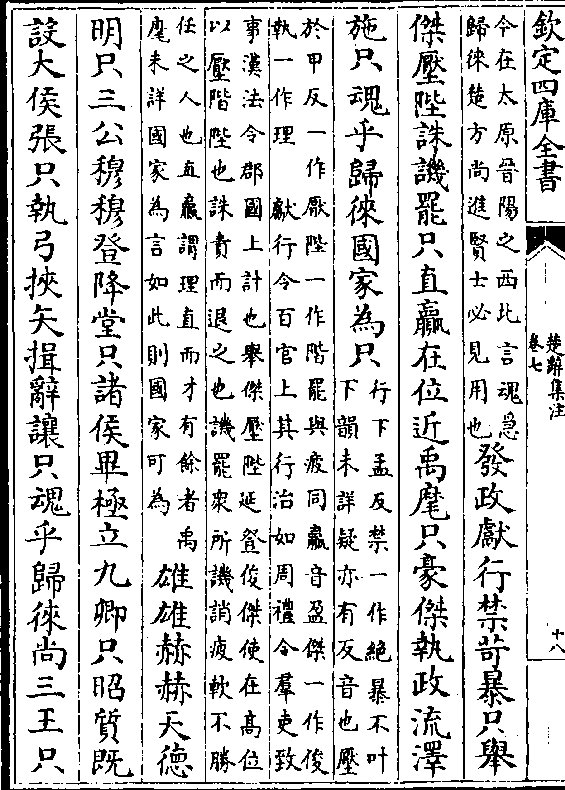 欽定四庫全書
楚辭集注
卷七
十八
今在太原晉陽之西北言魂急
歸徠楚方尚進賢士必見用也
發政獻行禁苛暴只舉
傑壓陛誅譏罷只直贏在位近禹麾只豪傑執政流澤
施只魂乎歸徠國家為只
行下孟反禁一作絶暴不叶
下韻未詳疑亦有反音也壓
於甲反一作厭陛一作階罷與疲同贏音盈傑一作俊
執一作理 獻行令百官上其行治如周禮令羣吏致
事漢法令郡國上計也舉傑壓陛延登俊傑使在髙位
以壓階陛也誅責而退之也譏罷衆所譏誚疲軟不勝
任之人也直贏謂理直而才有餘者禹
麾未詳國家為言如此則國家可為
雄雄赫赫天德
明只三公穆穆登降堂只諸侯畢極立九卿只昭質既
設大侯張只執弓挾矢揖辭讓只魂乎歸徠尚三王只